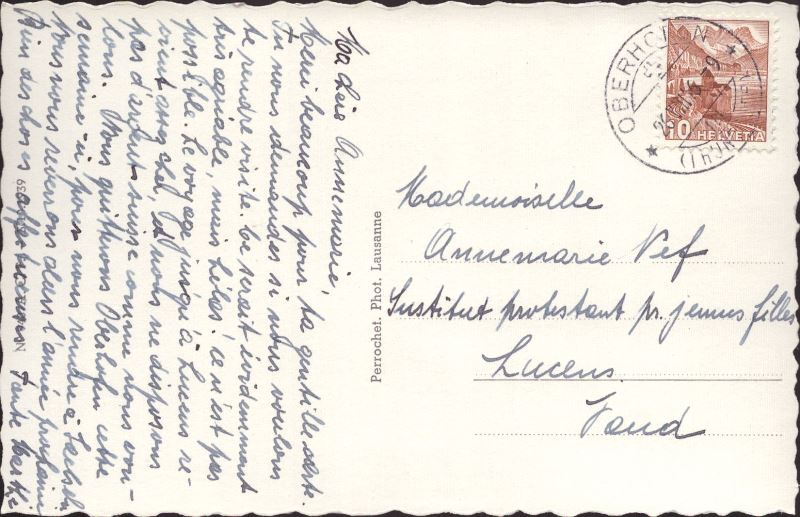 Ma Liebe Annemarie,
Merci beaucoup pour ta gentille carte.
Tu nous demandes si nous voulons
te rendre visite. Ce serait évidemment
très agréable, mais hélas! ce n'est pas
possible. Le voyage jusqu'à Lucens re-
vient assez cher, et nous ne disposons
pas d'argent suisse comme nous vou-
lons. Nous quitterons Oberhofen cette
semaine-ci, pour nous rendre à
Nous nous reverrons dans l'année prochaine
Bien des choses affectueuses Tante Marthe
Perrochet. Phot. Lausanne
OBERHOFEN
(THUNERSEE)
10 HELVETIA
Mademoiselle
Annemarie Nef
Institut protestant pr. jeunes filles
Lucens
Vaud